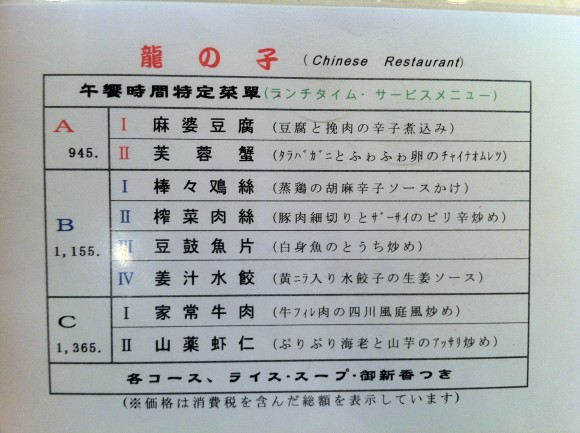 龍の子 (Chinese Restaurant)
午饗時間特定菜單(ランチタイム・サービスメニュー)
A 945.
I 麻婆豆腐 (豆腐と挽肉の辛子煮込み)
II 芙蓉蟹 (ﾀﾗﾊﾞｶﾞﾆとふわふわ卵のﾁｬｲﾅｵﾑﾚﾂ)
B 1,155.
I 棒々鶏絲 (蒸鶏の胡麻辛子ソースかけ)
II 榨菜肉絲 (豚肉細切りとｻﾞｰｻｲのピリ辛炒め)
III 豆鼓魚片 (白身魚のとうち炒め)
IV 姜汁水餃 (黄ﾆﾗ入り水餃子の生姜ソース)
C 1,365.
I 家常牛肉 (牛ﾌｨﾚ肉の四川風庭風炒め)
II 山薬虾仁 (ぷりぷり海老と山芋のｱｯｻﾘ炒め)
各コース、ライス・スープ・御新香つき
(※価格は消費税を含んだ総額を表示しています)